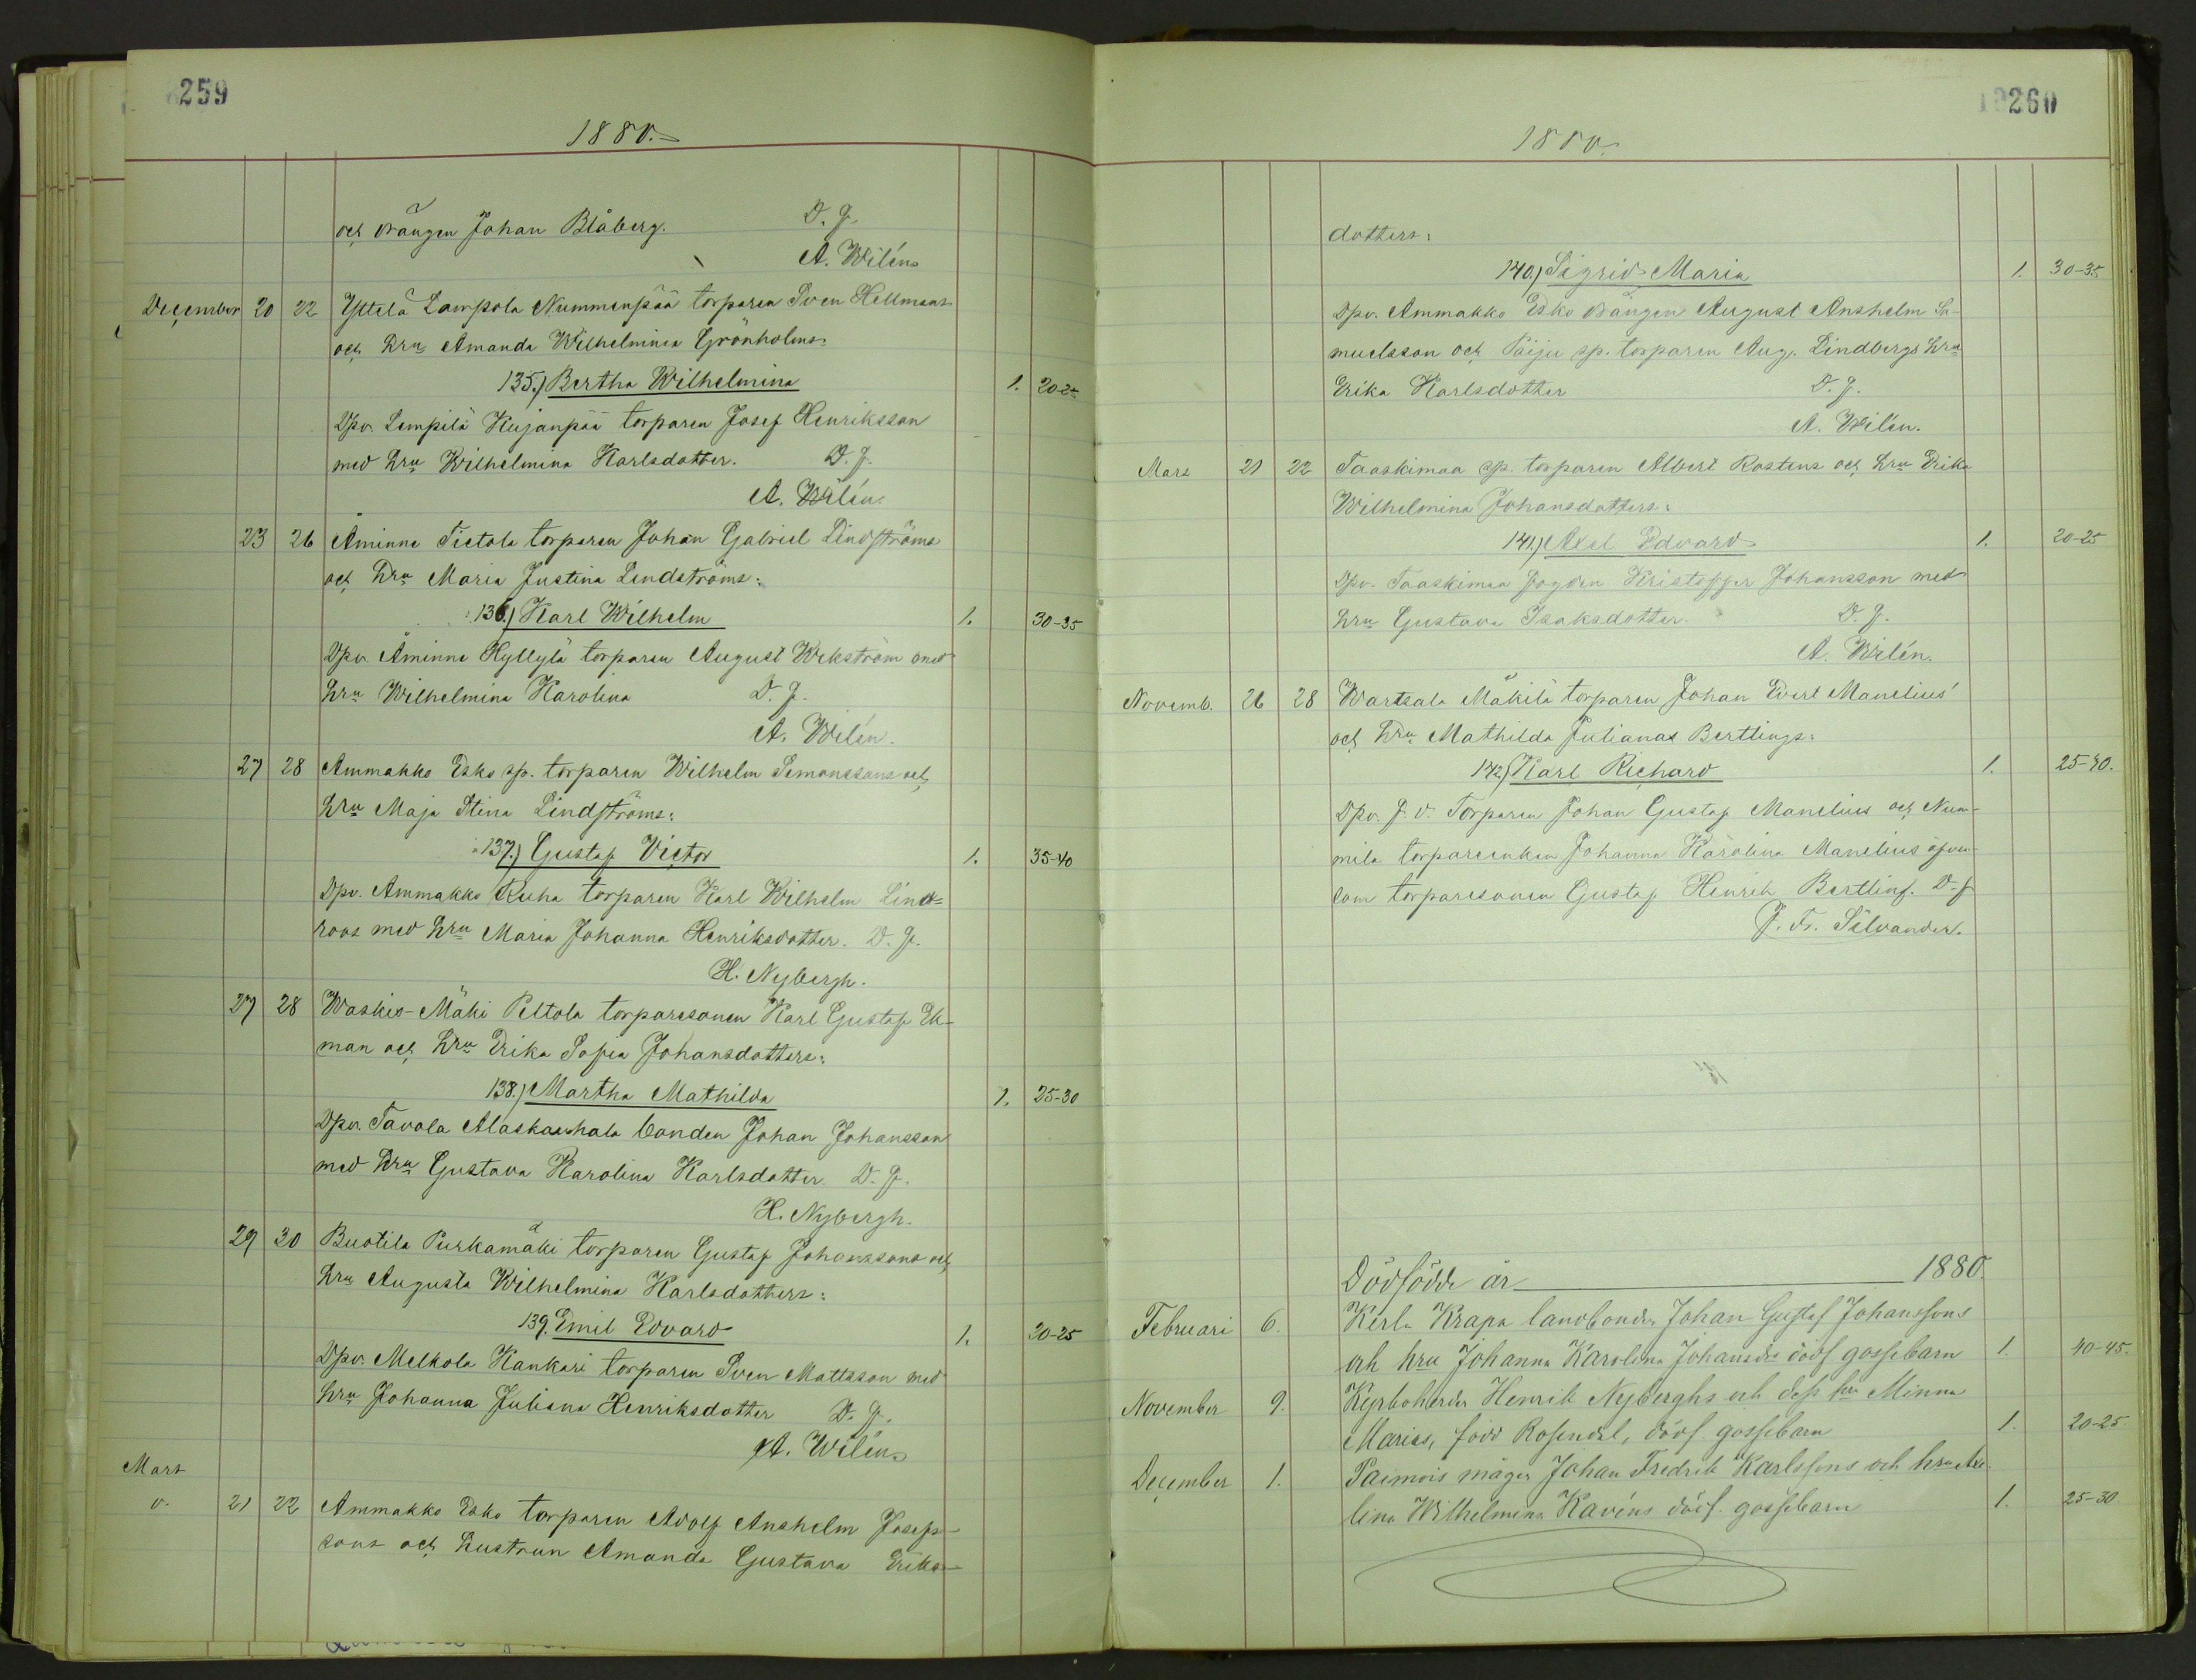 259
1880.
och drängen Johan Blåberg. D. f.
A. Wilén.
December 20 22 Yttelä Lampola Nummenpää torparen Sven Hellmans
och hru Amanda Wilhelmina Grönholms:
135.) Bertha Wilhelmina 1. 20-25
Dpv. Lempilä Kujanpää torparen Josef Henriksson
med hru Wilhelmina Karlsdotter. D. f.
A. Wilén.
23 26 Åminne Tietola torparen Johan Gabriel Lindströms
och hru Maria Justina Lindströms:
136.) Karl Wilhelm 1. 30-35
Dpv. Åminne Hyllylä torparen August Wekström med
hru Wilhelmina Karolina D. f.
A. Wilén.
27 28 Ammakko Esko sp. torparen Wilhelm Simonssons och
hru Maja Stina Lindströms:
137.) Gustaf Victor 1. 35-40
Dpv. Ammakko Ruha torparen Karl Wilhelm Lind-
roos med hru Maria Johanna Henriksdotter. D. f.
H. Nybergh.
27 28 Waskis-Mäki Peltola torparesonen Karl Gustaf Ek-
man och hru Erika Sofia Johansdotters:
138.) Martha Mathilda 1. 25-30
Dpv. Tavola Alaskauhala bonden Johan Johansson
med hru Gustava Karolina Karlsdotter. D. f.
H. Nybergh.
29 30 Buotila Purkamäki torparen Gustaf Johanssons och
hru Augusta Wilhelmina Karlsdotters:
139. Emil Edvard 1. 20-25
Dpv. Melkola Kankari torparen Sven Mattsson med
hru Johanna Juliana Henriksdotter D. f.
A. Wilén.
Mars
v. 21 22 Ammakko Esko torparen Adolf Anshelm Josefs-
sons och hustrun Amanda Gustava Eriks-
260
1880.
dotters:
140.) Sigrid Maria 1. 30-35
Dpv. Ammakko Esko drängen August Anshelm Sa-
muelsson och Päiju sp. torparen Aug. Lindbergs hru
Erika Karlsdotter D. f.
A. Wilén.
Mars 21 22 Taaskimaa sp. torparen Albert Rostens och hru Erika
Wilhelmina Johansdotters:
141.) Axel Edvard 1. 20-25
Dpv. Taaskimaa fogden Kristoffer Johansson med
hru Gustava Isaksdotter. D. f.
A. Wilén.
Novemb. 26 28 Wartsala Mäkilä torparen Johan Evert Manelius'
och hru Mathilda Julianas Bertlings:
142) Karl Richard 1. 25-40.
Dpv. f. d. Torparen Johan Gustaf Manelius och Num-
mila torpareenkan Johanna Karolina Manelius äfven-
som torparesonen Gustaf Henrik Bertling. D. f
F. Fr. Silvander.
Dödfödde år 1880.
Februari 6. Kerla Krapa landbonden Johan Gustaf Johanssons
och hru Johanna Karolina Johansdrs dödf gossebarn 1. 40-45.
November 9. Kyrkoherden Henrik Nyberghs och dess hru Minna
Marias, född Rosendal, dödf gossebarn 1. 20-25
December 1. Paimois mågen Johan Fredrik Karlssons och hru Axe-
lina Wilhelmina Kavéns dödf. gossebarn 1. 25-30